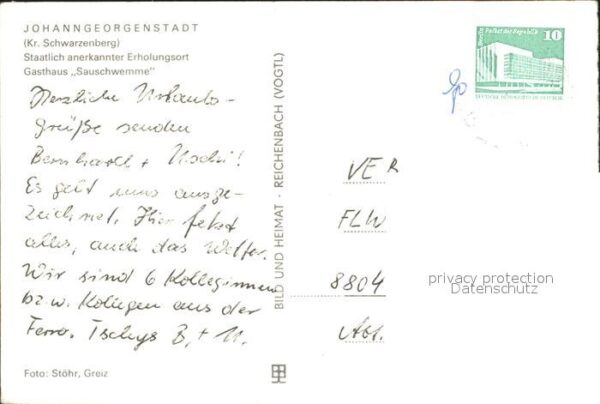 JOHANNGEORGENSTADT
(Kr. Schwarzenberg)
Staatlich anerkannter Erholungsort
Gasthaus „Sauschwemme"
Herzliche Urlaubs-
grüße senden
Bernhard + Uschi!
Es geht uns ausge-
zeichnet. Hier fetzt
alles, auch das Wetter.
Wir sind 6 Kolleginnen
bzw. Kollegen aus der
Ferro. Tschys B. + U.
Foto: Stöhr, Greiz
BILD UND HEIMAT · REICHENBACH (VOGTL)
Berlin, Palast der Republik
10
DEUTSCHE DEMOKRATISCHE REPUBLIK
VE R
FLW
8804
Abt.
privacy protection
Datenschutz